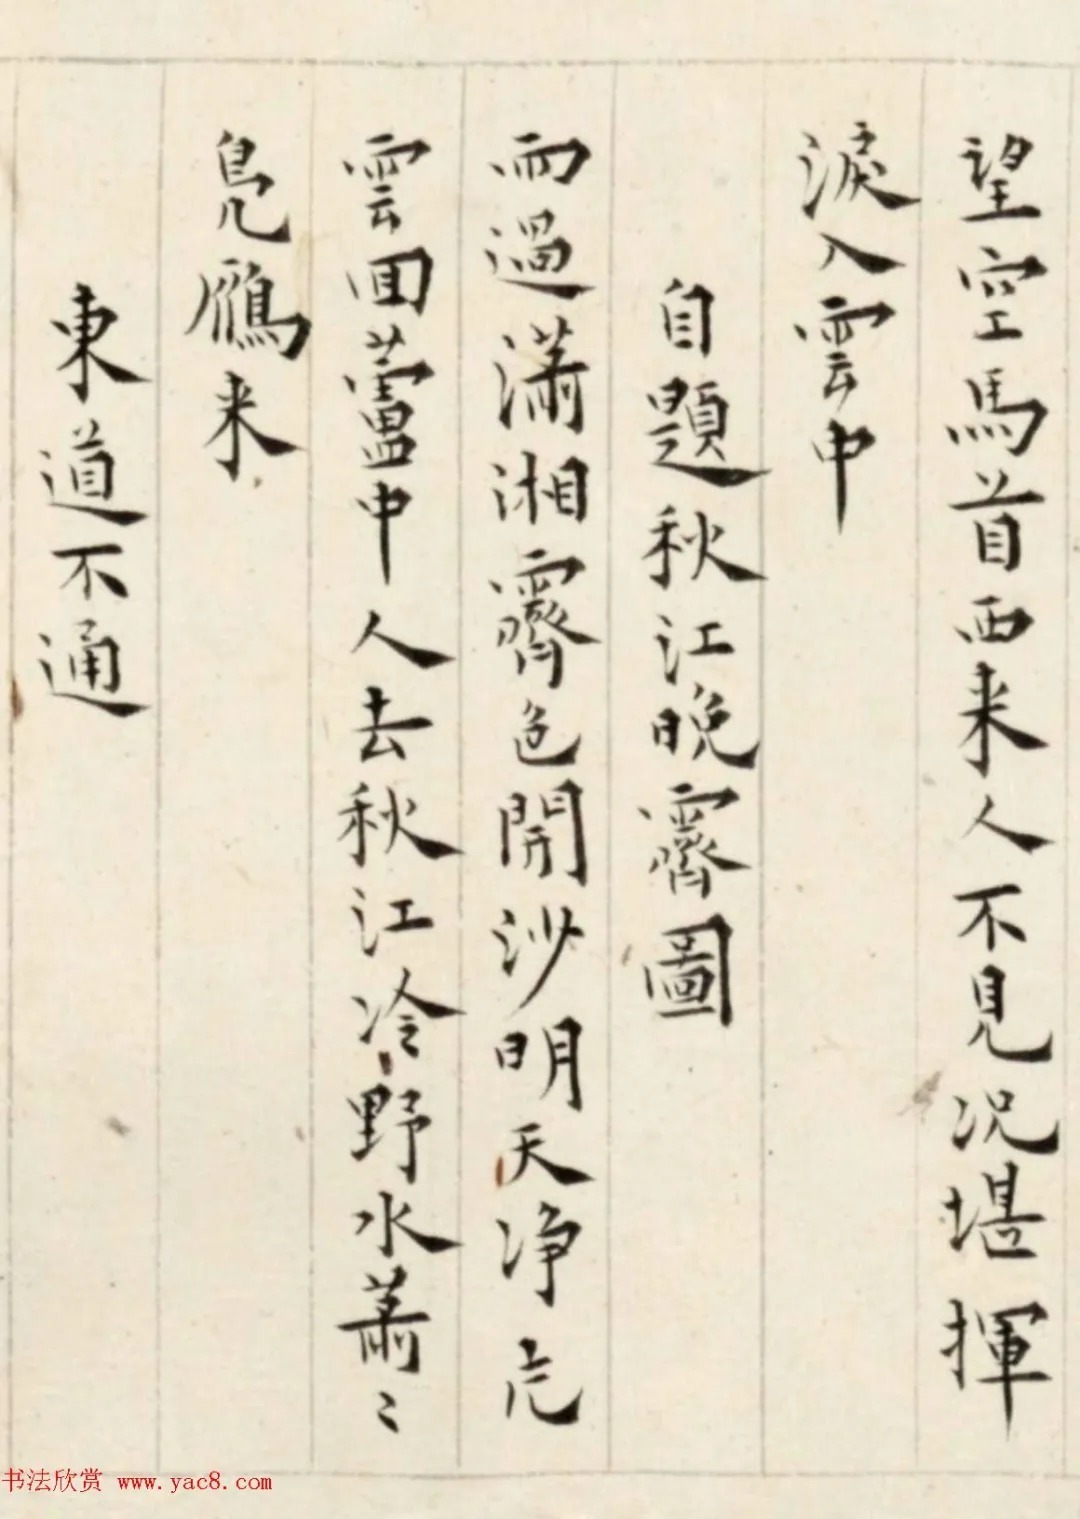 望空馬首西来人不見況堪揮
淚入雲中
自題秋江晚霽圖
雨過瀟湘霽色開沙明天净
雲囬蘆中人去秋江冷野水蕭〻
鳧鴈来
東道不通
书法欣赏 www.yac8.com